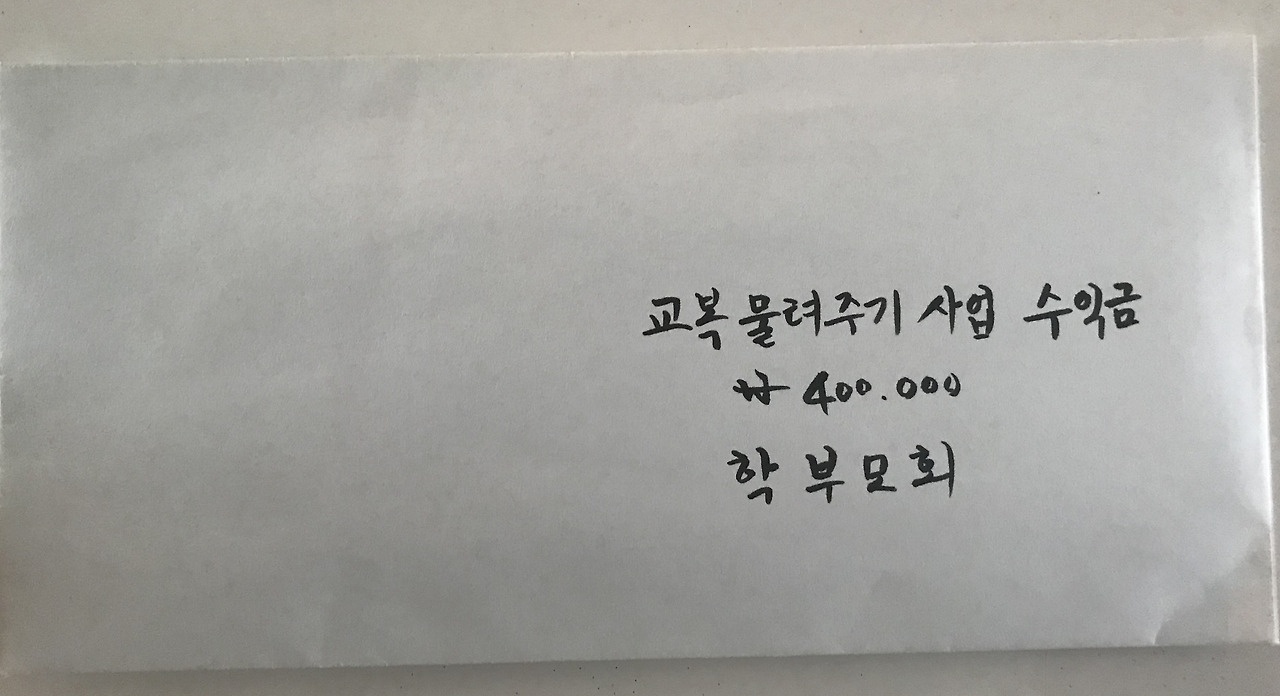 교복 물려주기 사업 수익금
₩ 400.000
학 부 모 회